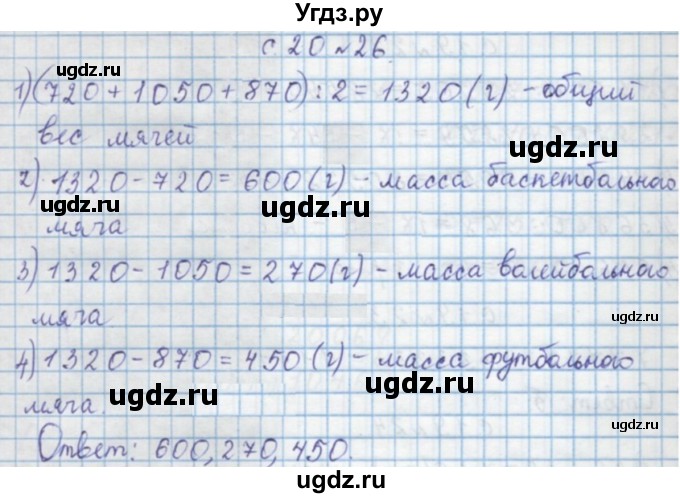 Угдз.ру
с 20 №26
1) (720 + 1050 + 870) : 2 = 1320 (г) - общий
вес мячей
ugdz.ru
ugdz.ru
2) 1320 - 720 = 600 (г) - масса баскетбольного
ugdz.ru
ugdz.ru
мяча
ugdz.ru
3) 1320 - 1050 = 270 (г) - масса волейбольного
ugdz.ru
мяча
4) 1320 - 870 = 450 (г) - масса футбольного
ugdz.ru
ugdz.ru
мяча.
Ответ: 600, 270, 450.
ugdz.ru
ugdz.ru